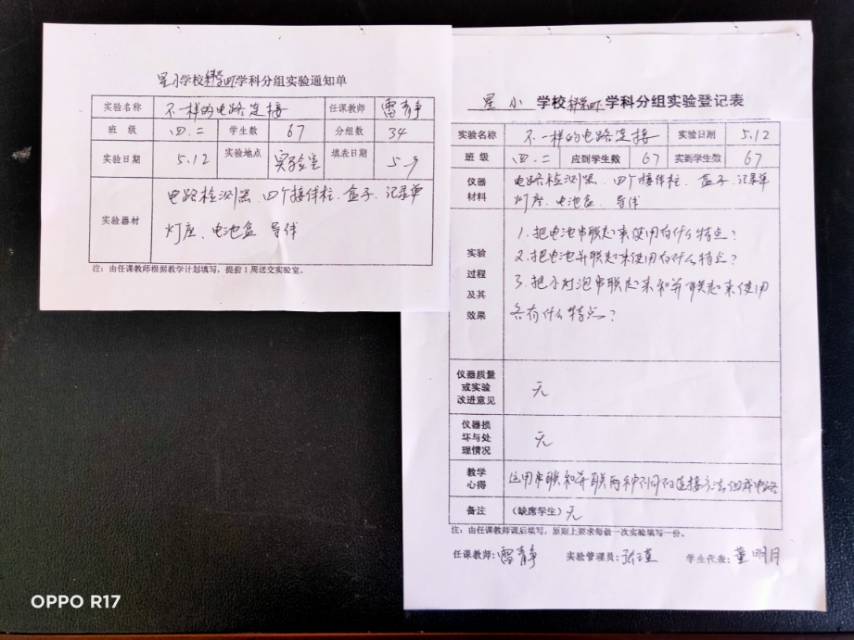 星小学校科学学科分组实验通知单
实验名称 不一样的电路连接 任课教师 雷青静
班 级 四.二 学生数 67 分组数 34
实验日期 5.12 实验地点 实验室 填表日期 5.9
实验器材
电路检测器、四个接线柱、盒子、记录单
灯座、电池盒 导线
注：由任课教师根据教学计划填写，提前1周送交实验室。
星小 学校 学科分组实验登记表
实验名称 不一样的电路连接 实验日期 5.12
班 级 四.二 应到学生数 67 实到学生数 67
仪器材料
电路检测器、四个接线柱、盒子、记录单
灯座、电池盒 导线
实验过程及其效果
1.把电池串联起来使用有什么特点？
2.把电池并联起来使用有什么特点？
3.把小灯泡串联起来和并联起来使用
各有什么特点？
仪器质量或实验改进意见 无
仪器损坏与处理情况 无
教学心得 运用串联和并联两种不同的连接方法
备注 (缺席学生)无
注：由任课教师课后填写，原则上要求每做一次实验填写一份。
任课教师：雷青静 实验管理员：张 学生代表：董明月
OPPO R17